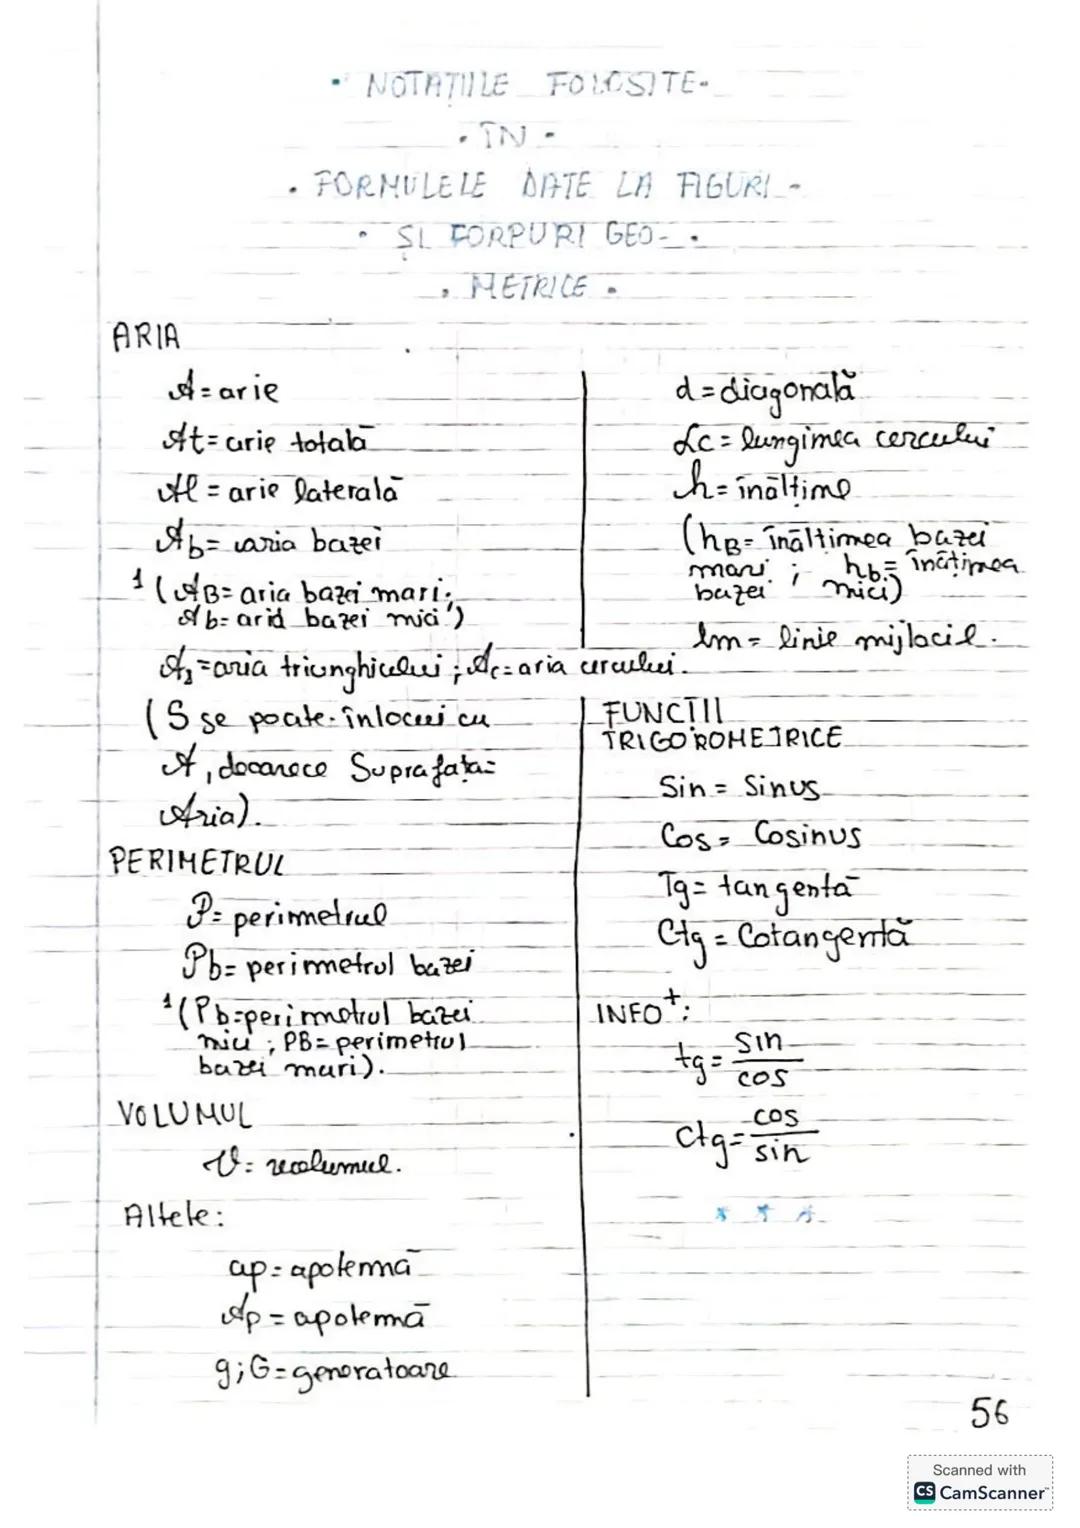 • NOTAȚIILE FOLOSITE-
• ÎN •
• FORMULELE DATE LA FIGURI -
• ȘI CORPURI GEO- •
• METRICE •
ARIA
A = arie
At = arie totală
Al = arie laterală
Ab = aria bazei
1 (AB = aria bazei mari;
Ab = aria bazei mici)
= aria triunghiului; Ac = aria cercului.
(S se poate înlocui cu
A, deoarece Suprafața =
Aria).
PERIMETRUL
P = perimetrul
Pb = perimetrul bazei
1 (Pb = perimetrul bazei
mici; PB = perimetrul
bazei mari).
VOLUMUL
V = volumul.
Altele:
ap = apotemă
Ap = apotemă
g; G = generatoare
d = diagonală
Lc = lungimea cercului
h = înălțime
(hB = înălțimea bazei
mari; hb = înățimea
bazei mici)
lm = linie mijlocie.
FUNCȚII
TRIGOROMETRICE
Sin = Sinus
Cos = Cosinus
Tg = tangentă
Ctg = Cotangentă
INFO+:
tg = sin
cos
ctg = cos
sin
* * *
56
Scanned with
CS CamScanner™